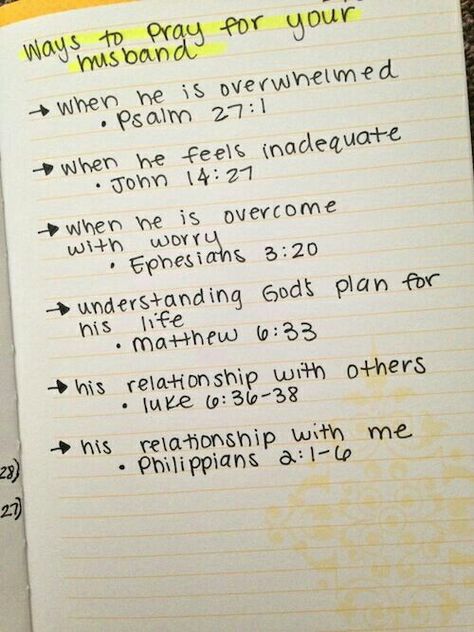 Ways to Pray for your
husband
→ when he is overwhelmed
• Psalm 27:1
→ when he feels inadequate
• John 14:27
→ when he is overcome
with worry
• Ephesians 3:20
→ understanding God's plan for
his life
• matthew 6:33
→ his relationship with others
• luke 6:36-38
→ his relationship with me
• Philippians 2:1-6
28)
27)